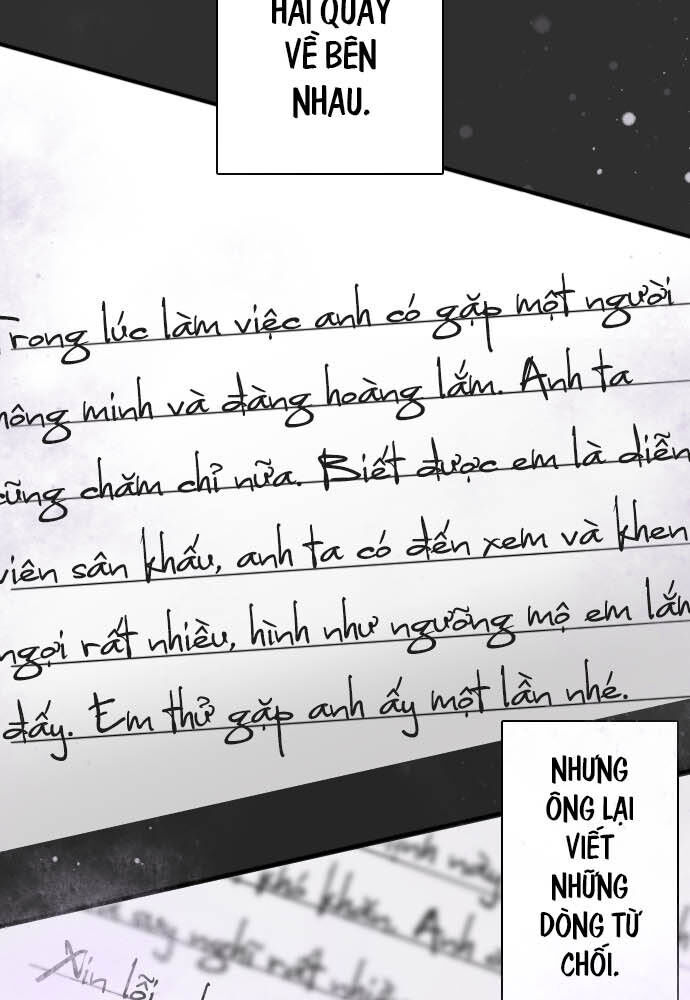 HAI QUAY
VỀ BÊN
NHAU.
Trong lúc làm việc anh có gặp một người
thông minh và đàng hoàng lắm. Anh ta
cũng chăm chỉ nữa. Biết được em là diễn
viên sân khấu, anh ta có đến xem và khen
ngợi rất nhiều, hình như ngưỡng mộ em lắm
đấy. Em thử gặp anh ấy một lần nhé.
NHƯNG
ÔNG LẠI
VIẾT
NHỮNG
DÒNG TỪ
CHỐI.
phé phán. Anh
suy nghĩ rất nhiều
Xin lỗi